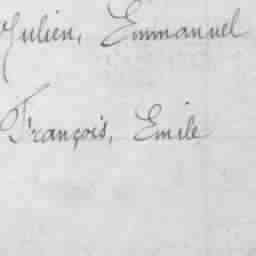 Julien, Emmanuel
François, Emile